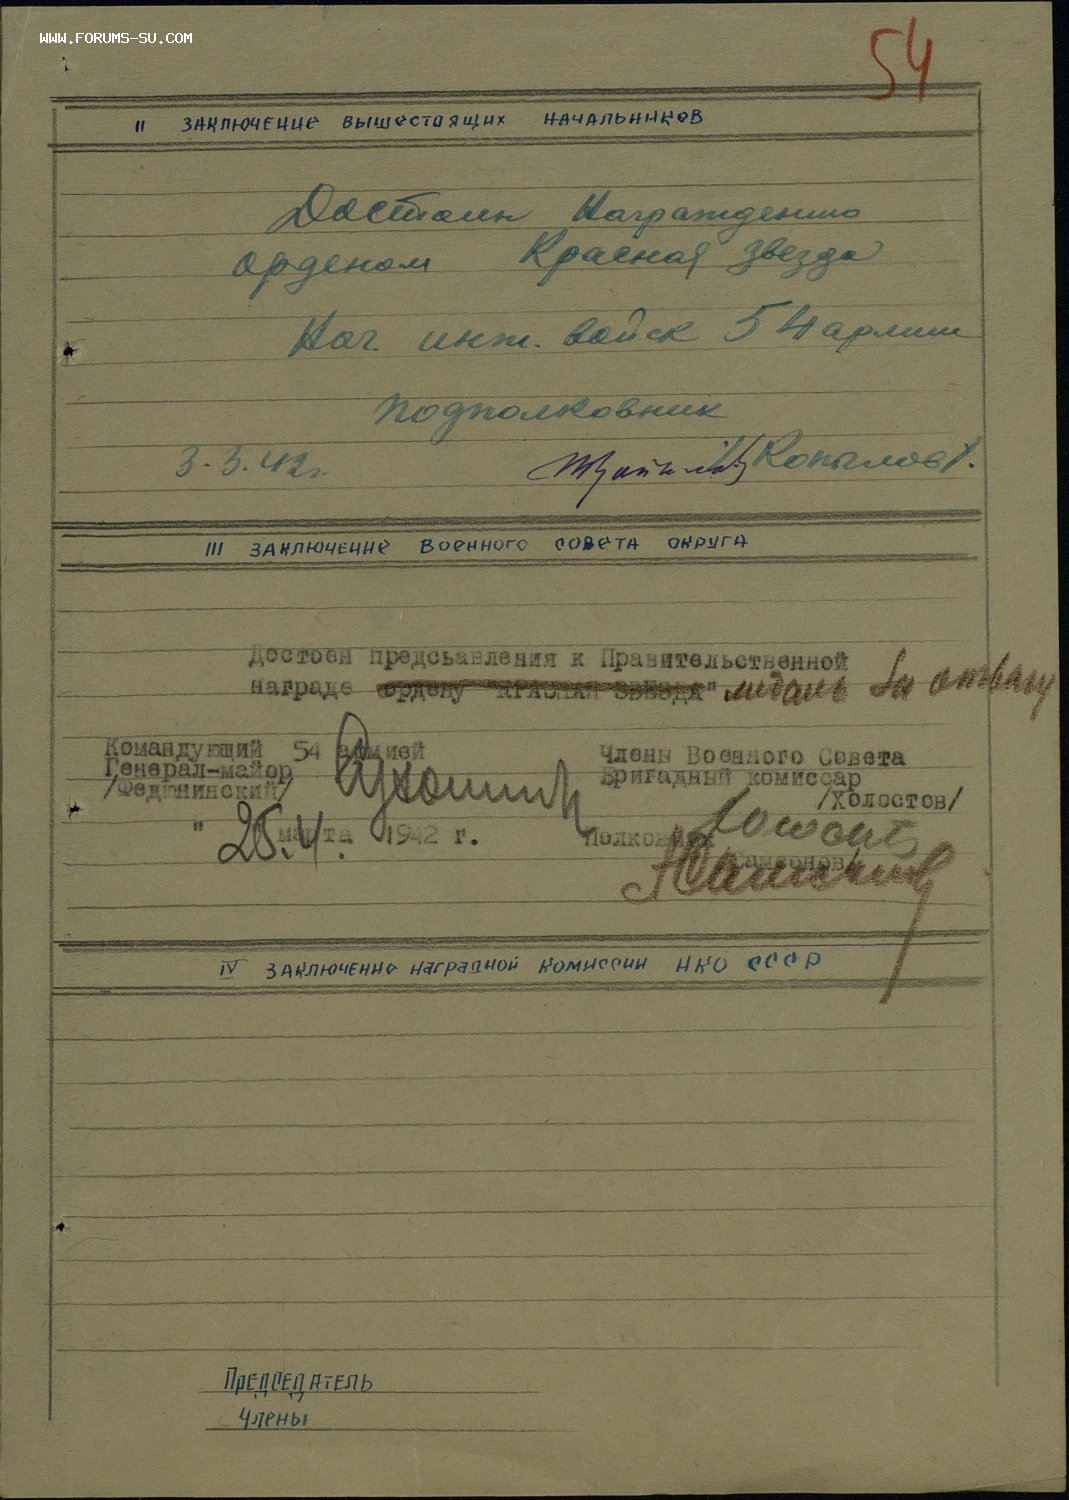 WWW.FORUMS-SU.COM
54
II ЗАКЛЮЧЕНИЕ ВЫШЕСТОЯЩИХ НАЧАЛЬНИКОВ
Достоин Награждению
орденом Красная звезда
Нач. инж. войск 54 армии
подполковник
3.3.42г. /Копылов/.
III ЗАКЛЮЧЕНИЕ ВОЕННОГО СОВЕТА ОКРУГА
Достоен предсьавления к Правительственной
награде ордену "КРАСНАЯ ЗВЕЗДА" медаль За отвагу
Командующий 54 армией
Генерал-майор
/Федюнинский/
Члены Военного Совета
Бригадный комиссар
/Холостов/
" 25.4. марта 1942 г.
Полковник
/Самсонов/
IV ЗАКЛЮЧЕНИЕ НАГРАДНОЙ КОМИССИИ НКО СССР
ПРЕДСЕДАТЕЛЬ
ЧЛЕНЫ